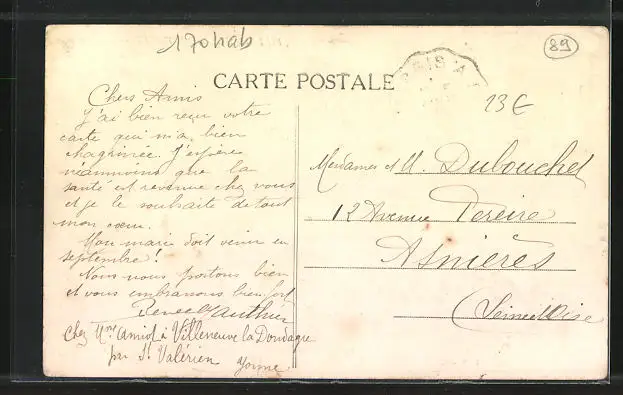 170hab
89
CARTE POSTALE
23€
Chers Amis
J'ai bien reçu votre
carte qui m'a bien
chagrinée. J'espère
néanmoins que la
santé est revenue chez vous
et je le souhaite de tout
mon cœur.
Mon mari doit venir en
septembre!
Nous nous portons bien
et vous embrassons bien fort
Renée Gauthier
Chez Mme Amiot à Villeneuve la Dondagre
par St Valérien
Yonne
Mesdames et M. Dubouchet
12 Avenue Pereire
Asnières
(Seine et Oise